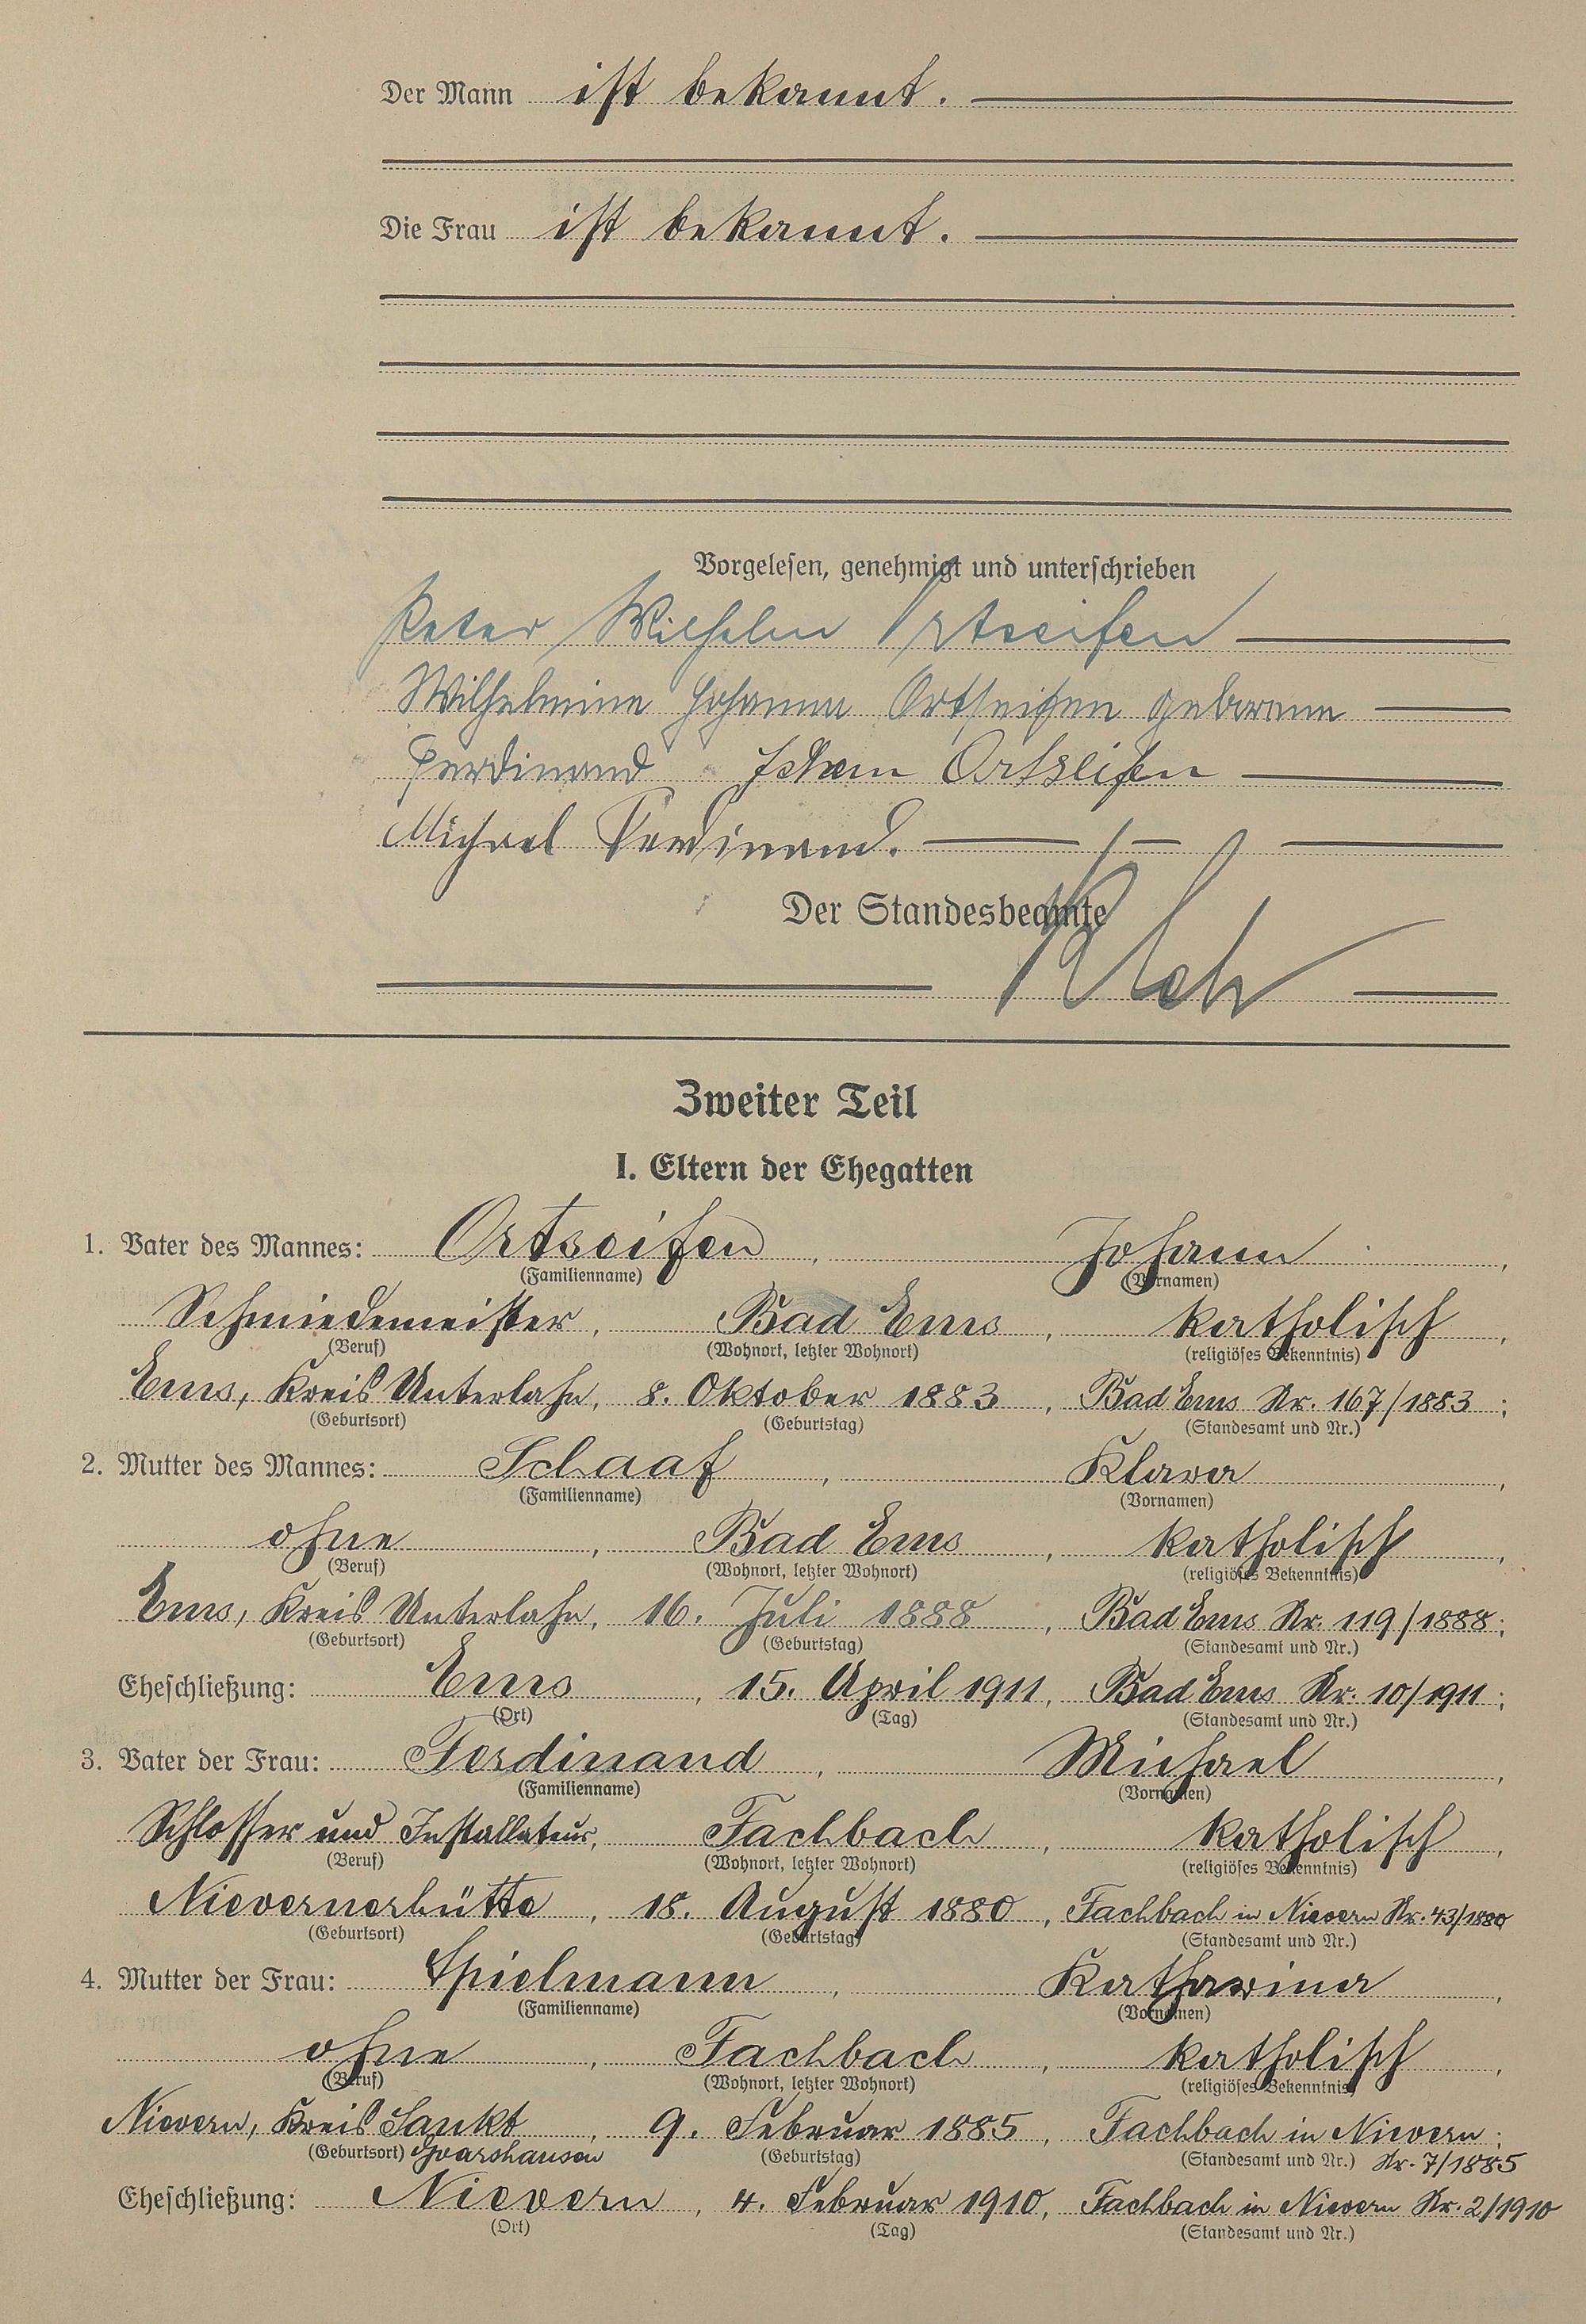 Der Mann ist bekannt.
Die Frau ist bekannt.
Vorgelesen, genehmigt und unterschrieben
Peter Wilhelm Ortseifen
Wilhelmine Johanna Ortseifen geborene
Ferdinand Johann Ortseifen
Michael Ferdinand.
Der Standesbeamte
Zweiter Teil
I. Eltern der Ehegatten
1. Vater des Mannes: Ortseifen, Johann,
(Familienname) (Vornamen)
Schmiedemeister, Bad Ems, katholisch,
(Beruf) (Wohnort, letzter Wohnort) (religiöses Bekenntnis)
Ems, Kreis Unterlahn, 8. Oktober 1883, Bad Ems Nr. 167/1883;
(Geburtsort) (Geburtstag) (Standesamt und Nr.)
2. Mutter des Mannes: Schaaf, Klara,
(Familienname) (Vornamen)
ohne, Bad Ems, katholisch,
(Beruf) (Wohnort, letzter Wohnort) (religiöses Bekenntnis)
Ems, Kreis Unterlahn, 16. Juli 1888, Bad Ems Nr. 119/1888;
(Geburtsort) (Geburtstag) (Standesamt und Nr.)
Eheschließung: Ems, 15. April 1911, Bad Ems Nr. 10/1911;
(Ort) (Tag) (Standesamt und Nr.)
3. Vater der Frau: Ferdinand, Michael,
(Familienname) (Vornamen)
Schlosser und Installateur, Fachbach, katholisch,
(Beruf) (Wohnort, letzter Wohnort) (religiöses Bekenntnis)
Nievernerhütte, 18. August 1880, Fachbach in Nievern Nr. 43/1880
(Geburtsort) (Geburtstag) (Standesamt und Nr.)
4. Mutter der Frau: Spielmann, Katharina,
(Familienname) (Vornamen)
ohne, Fachbach, katholisch,
(Beruf) (Wohnort, letzter Wohnort) (religiöses Bekenntnis)
Nievern, Kreis Sankt, 9. Februar 1885, Fachbach in Nievern;
(Geburtsort) Goarshausen (Geburtstag) (Standesamt und Nr.) Nr. 7/1885
Eheschließung: Nievern, 4. Februar 1910, Fachbach in Nievern Nr. 2/1910
(Ort) (Tag) (Standesamt und Nr.)